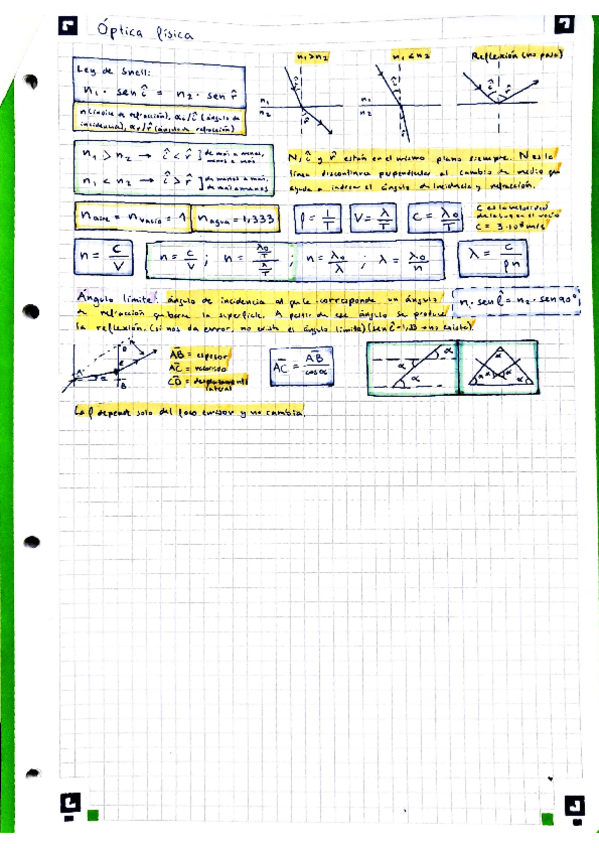 Óptica física
n₁>n₂
n₁<n₂
Reflexión (no pasa)
Ley de Snell:
n₁ · sen î = n₂ · sen r̂
n (índice de refracción), αᵢ/î (ángulo de
incidencia), αᵣ/r̂ (ángulo de refracción)
n₁
n₂
î
r̂
n₁
n₂
î
r̂
î
r̂
n₁ > n₂ → î < r̂ ] de más a menos,
menos a más
n₁ < n₂ → î > r̂ ] de menos a más,
de más a menos
N, î y r̂ están en el mismo plano siempre. N es la
línea discontinua perpendicular al cambio de medio que
ayuda a indicar el ángulo de incidencia y refracción.
n aire = n vacío = 1
n agua = 1,333
f = 1/T
V = λ/T
C = λ₀/T
C es la velocidad
de la luz en el vacío
C = 3·10⁸ m/s
n = C/V
n = C/V ; n = (λ₀/T)/(λ/T) ; n = λ₀/λ ; λ = λ₀/n
λ = C/(f n)
Ángulo límite: ángulo de incidencia al que le corresponde un ángulo
de refracción que barre la superficie. A partir de ese ángulo se produce
la reflexión. (si nos da error, no existe el ángulo límite)
n₁ · sen l̂ = n₂ · sen 90°
AB = espesor
AC = recorrido
CD = desplazamiento
lateral
AC = AB/cos α
α
α
α
α
α
α
La f depende solo del foco emisor y no cambia.